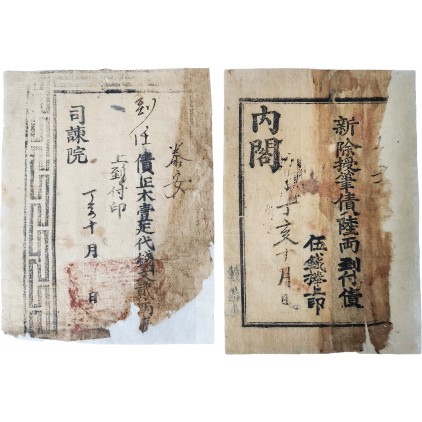 泰安
到任債正木壹疋代錢
上到付印
丁亥十月 日
司諫院
新除授筆債陸兩到付債
伍錢捧上印
丁亥十月 日
內閣